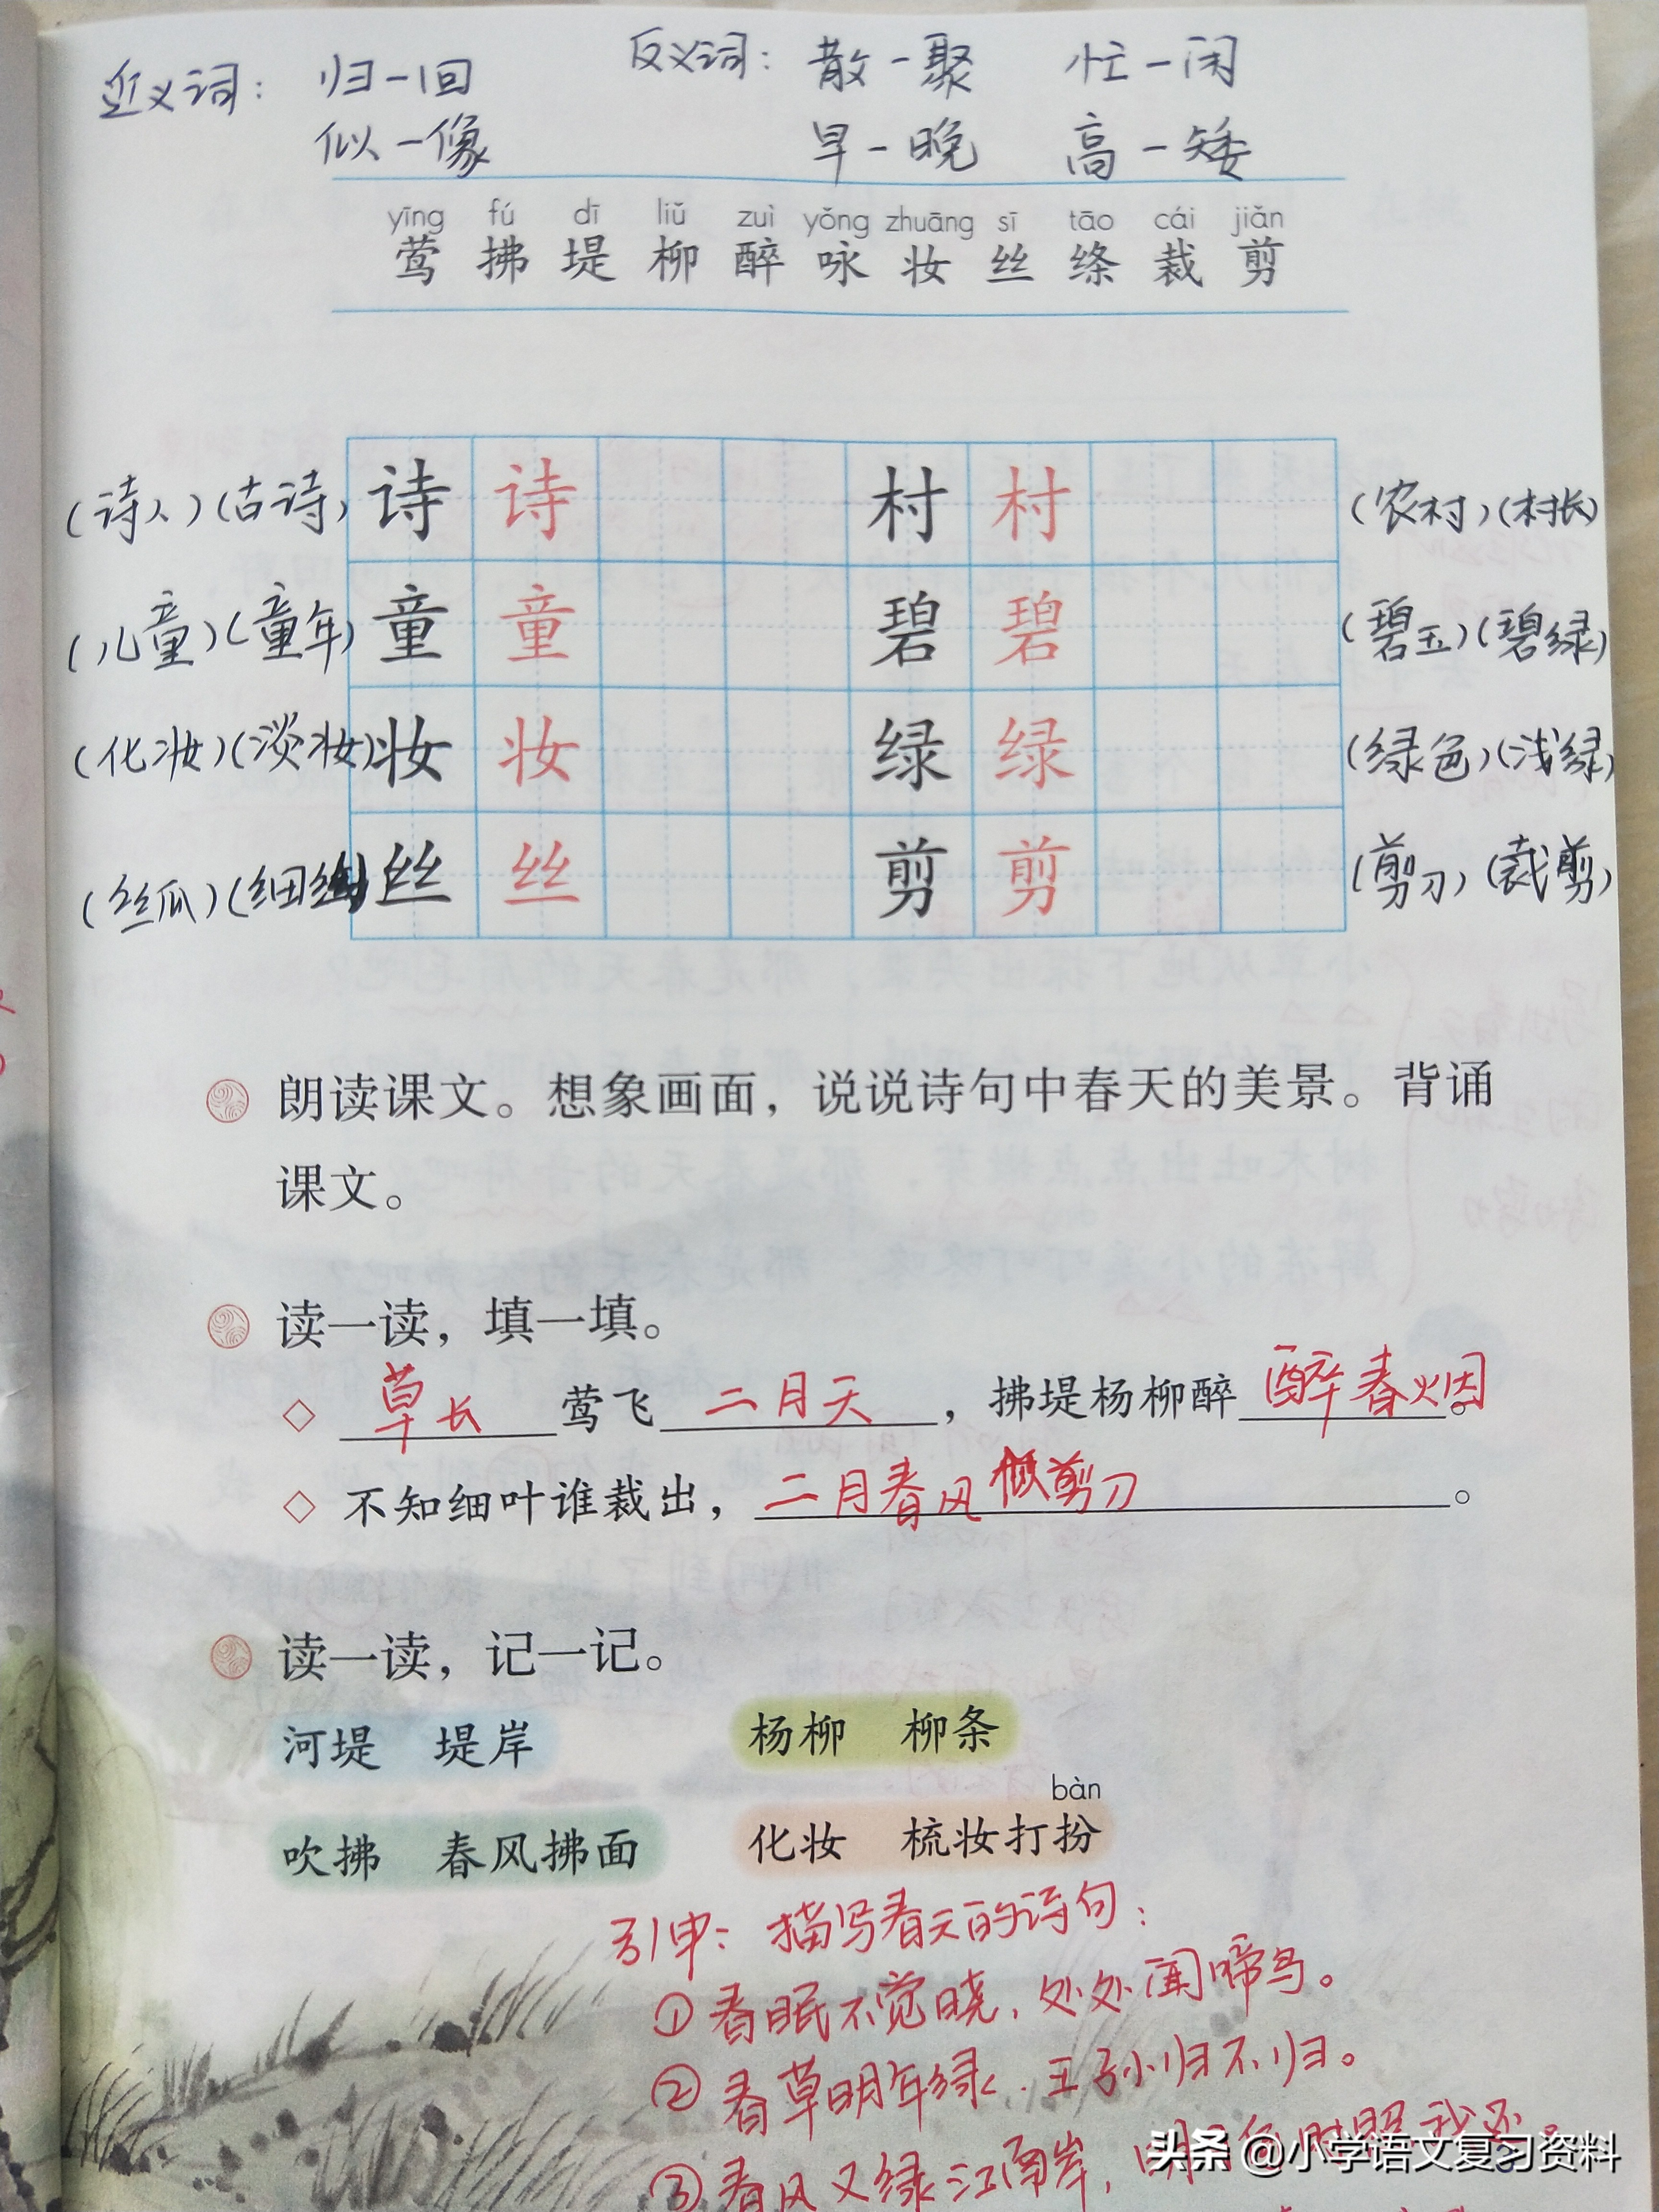 近义词： 归一回 反义词： 散一聚 忙一闲
似一像 早一晚 高一矮
yīng fú dī liǔ zuì yǒng zhuāng sī tāo cái jiǎn
莺 拂 堤 柳 醉 咏 妆 丝 绦 裁 剪
(诗人)(古诗) 诗 诗 村 村 (农村)(村长)
(儿童)(童年) 童 童 碧 碧 (碧玉)(碧绿)
(化妆)(淡妆) 妆 妆 绿 绿 (绿色)(浅绿)
(丝瓜)(细丝) 丝 丝 剪 剪 (剪刀)(裁剪)
朗读课文。想象画面，说说诗句中春天的美景。背诵
课文。
读一读，填一填。
◇ 草长莺飞二月天，拂堤杨柳醉醉春烟。
◇ 不知细叶谁裁出，二月春风似剪刀。
读一读，记一记。
河堤 堤岸 杨柳 柳条
bàn
吹拂 春风拂面 化妆 梳妆打扮
引申：描写春天的诗句：
①春眠不觉晓，处处闻啼鸟。
②春草明年绿，王孙归不归。
③春风又绿江南岸，明月何时照我还。
头条 @小学语文复习资料